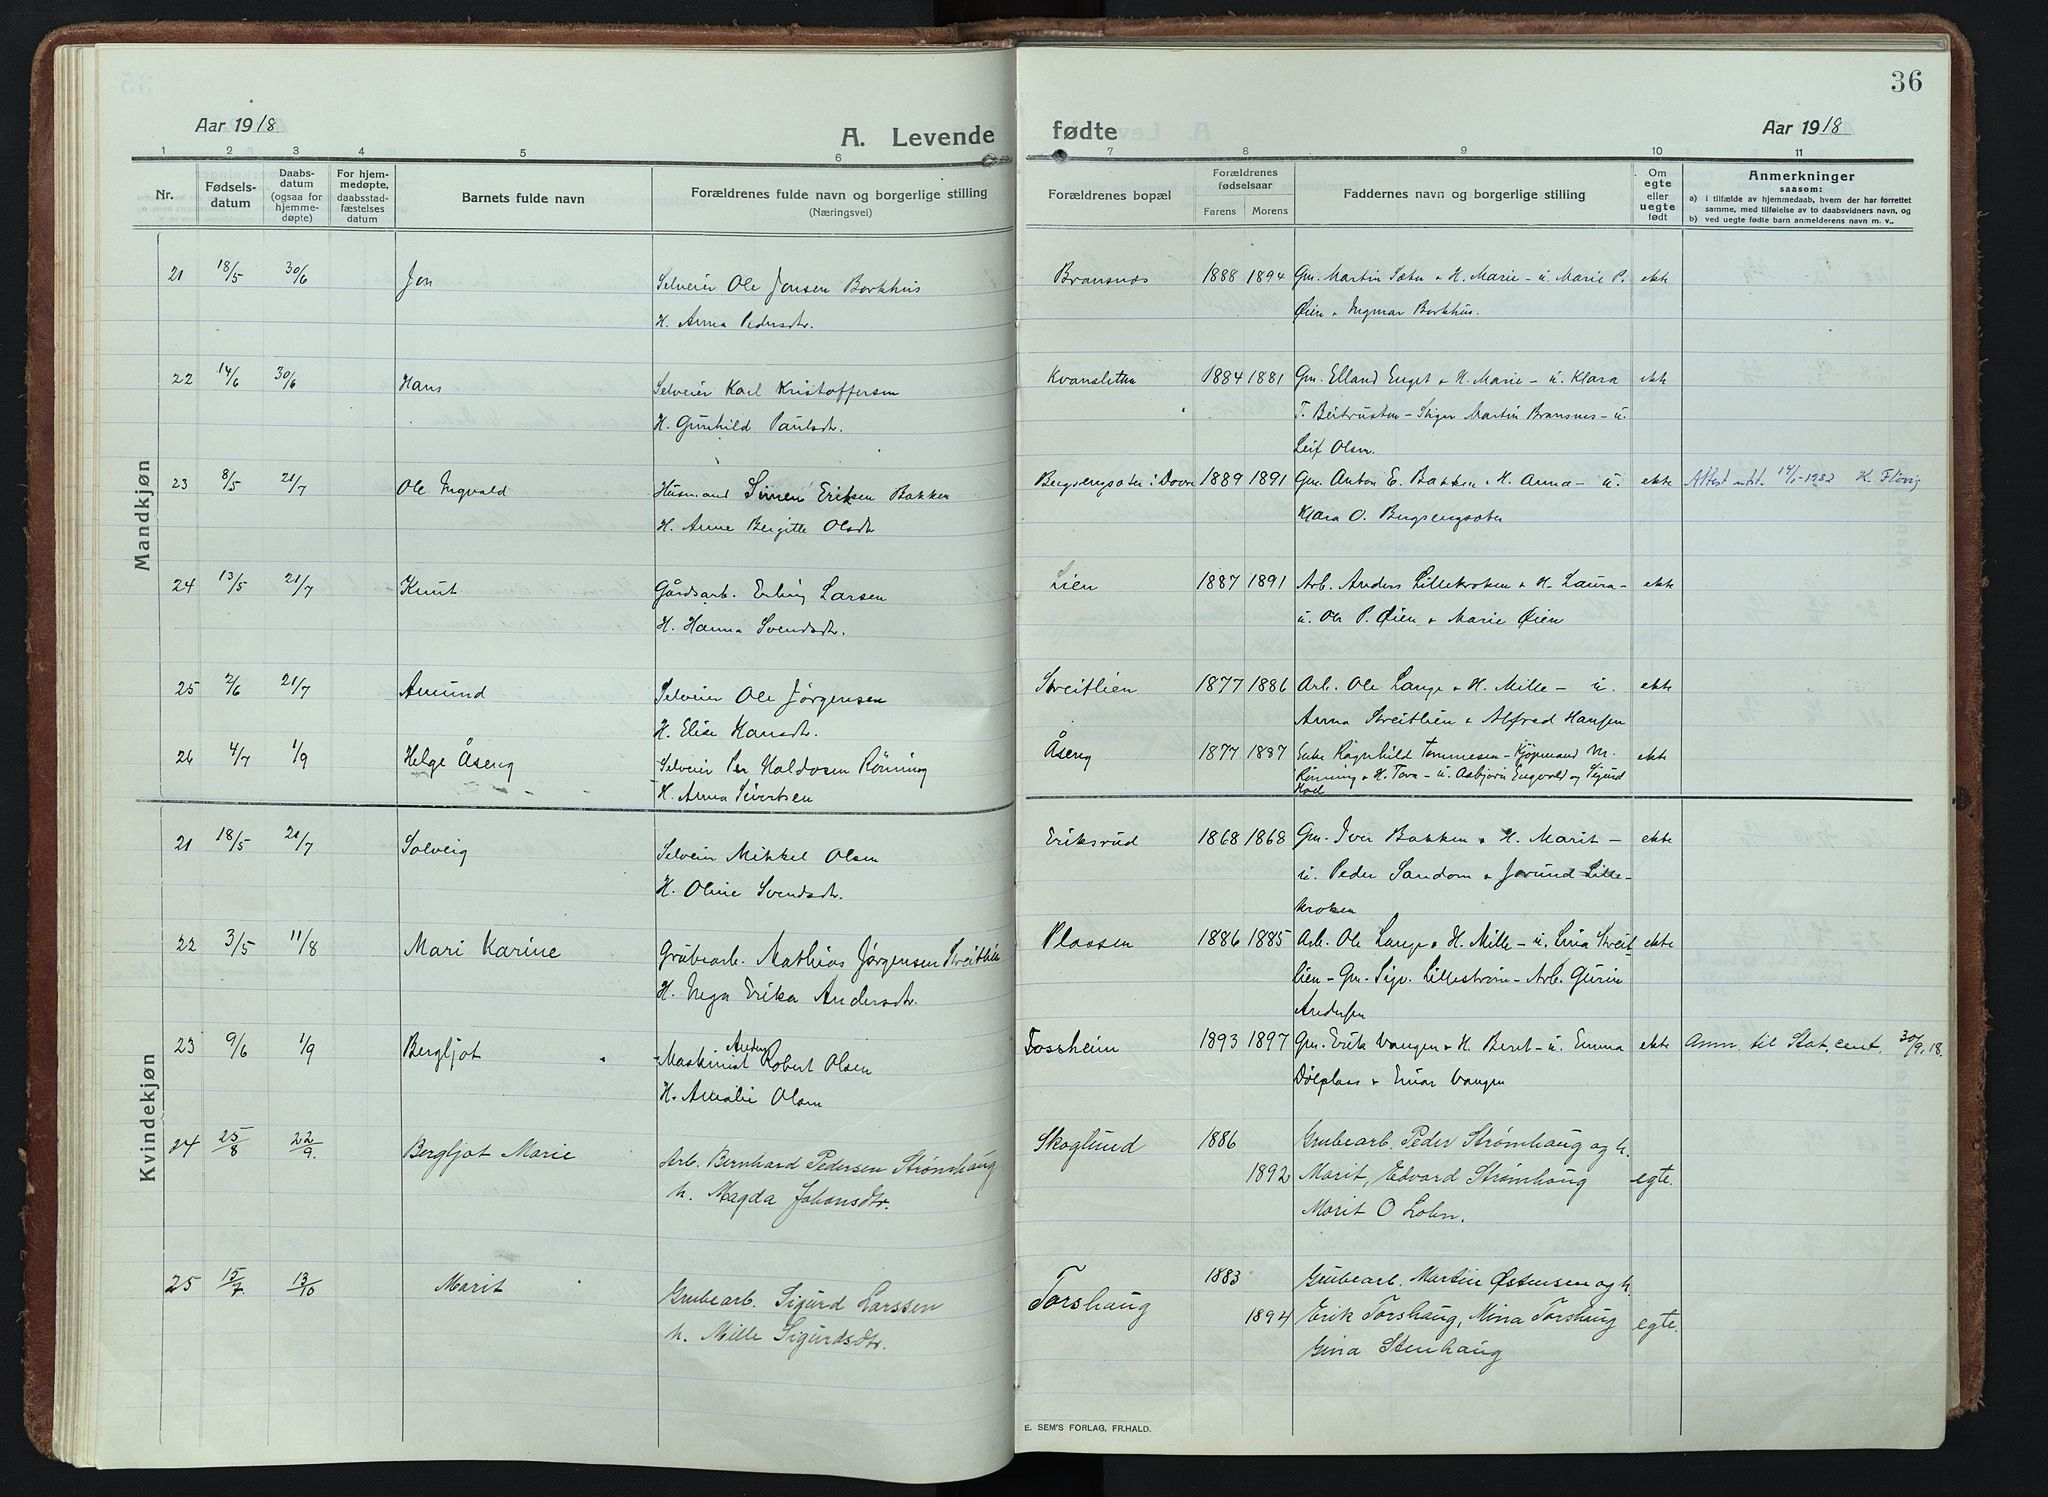 36
Aar 1918
A. Levende
fødte
Aar 1918
1 2 3 4 5 6 7 8 9 10 11
Nr.
Fødsels-
datum
Daabs-
datum
(ogsaa for
hjemme-
døpte)
For hjem-
medøpte,
daabsstad-
fæstelses
datum
Barnets fulde navn
Forældrenes fulde navn og borgerlige stilling
(Næringsvei)
Forældrenes bopæl
Forældrenes
fødselsaar
Farens Morens
Faddernes navn og borgerlige stilling
Om
egte
eller
uegte
født
Anmerkninger
saasom:
a) i tilfælde av hjemmedaab, hvem der har forrettet
samme, med tilføielse av to daabsvidners navn, og
b) ved uegte fødte barn anmelderens navn m. v..
Mandkjøn
21 18/5 30/6 Jon Selveier Ole Jonsen Borkhus Bransnes 1888 1894 Gm. Martin Sæter & H. Marie - u. Marie P. ekte
H. Anna Pedersdtr. Øien & Ingmar Borkhus.
22 14/6 30/6 Hans Selveier Karl Kristoffersen Kvanslethe 1884 1881 Gm. Elland Enget & H. Marie - u. Klara ekte
H. Gunhild Paulsdtr. T. Beitrusten - Stiger Martin Bransnes - u.
Leif Olsen.
23 8/5 21/7 Ole Ingvald Husmand Simen Eriksen Bakken Bergsengsæter i Dovre 1889 1891 Gm. Anton E. Bakken & H. Anna - u. ekte Attest utst. 14/1-1982 K. Fløvig
H. Anne Bergitte Olsdtr Klara O. Bergsengsæter
24 13/5 21/7 Knut Gårdsarb. Erling Larsen Lien 1887 1891 Arb. Anders Lillekroken & H. Laura - ekte
H. Hanna Svendsdtr. u. Ole P. Øien & Marie Øien
25 2/6 21/7 Amund Selveier Ole Jørgensen Streitlien 1877 1886 Arb. Ole Lange & H. Mille - u. ekte
H. Elise Hansdtr. Anna Streitlien & Alfred Hansen
26 4/7 1/9 Helge Åseng Selveier Per Haldosen Rönning Åseng 1877 1887 Enke Ragnhild Tommesen - Kjøpmand M. ekte
H. Anna Sivertsen Rønning & H. Tora - u. Asbjørn Engvold og Sigurd
Hoel
Kvindekjøn
21 18/5 21/7 Solveig Selveier Mikkel Olsen Eriksrud 1868 1868 Gm. Iver Bakken & H. Marit - ekte
H. Oline Svendsdtr. u. Peder Sandom & Jorund Lille-
kroken
22 3/5 11/8 Mari Karine Grubearb. Mathias Jørgensen Streitlien Plassen 1886 1885 Arb. Ole Lange & H. Mille - u. Lina Streit- ekte
H. Inga Erika Andersdtr. lien - Gm. Sigv. Lillestrøm - Arb. Gurine
Andersen
23 9/6 1/9 Bergljot Maskinist Anders Robert Olsen Tossheim 1893 1897 Gm. Erik Vangen & H. Beret - u. Emma ekte Anm. til Stat. cent. 30/9.18.
H. Amalie Olsen Dölplass & Einar Vangen
24 25/8 22/9. Bergljot Marie Arb. Bernhard Pedersen Strømhaug Skoglund 1886 Grubearb. Peder Strømhaug og h.
h. Magda Johansdtr. 1892 Marit, Edvard Strømhaug egte.
Marit O Lohn.
25 15/7 13/10 Marit Grubearb. Sigurd Larssen Torshaug 1883 Grubearb. Martin Østensen og h.
h. Mille Sigurdsdtr. 1894 Erik Torshaug, Mina Torshaug egte.
Gina Stenhaug
E. SEM'S FORLAG, FR.HALD.